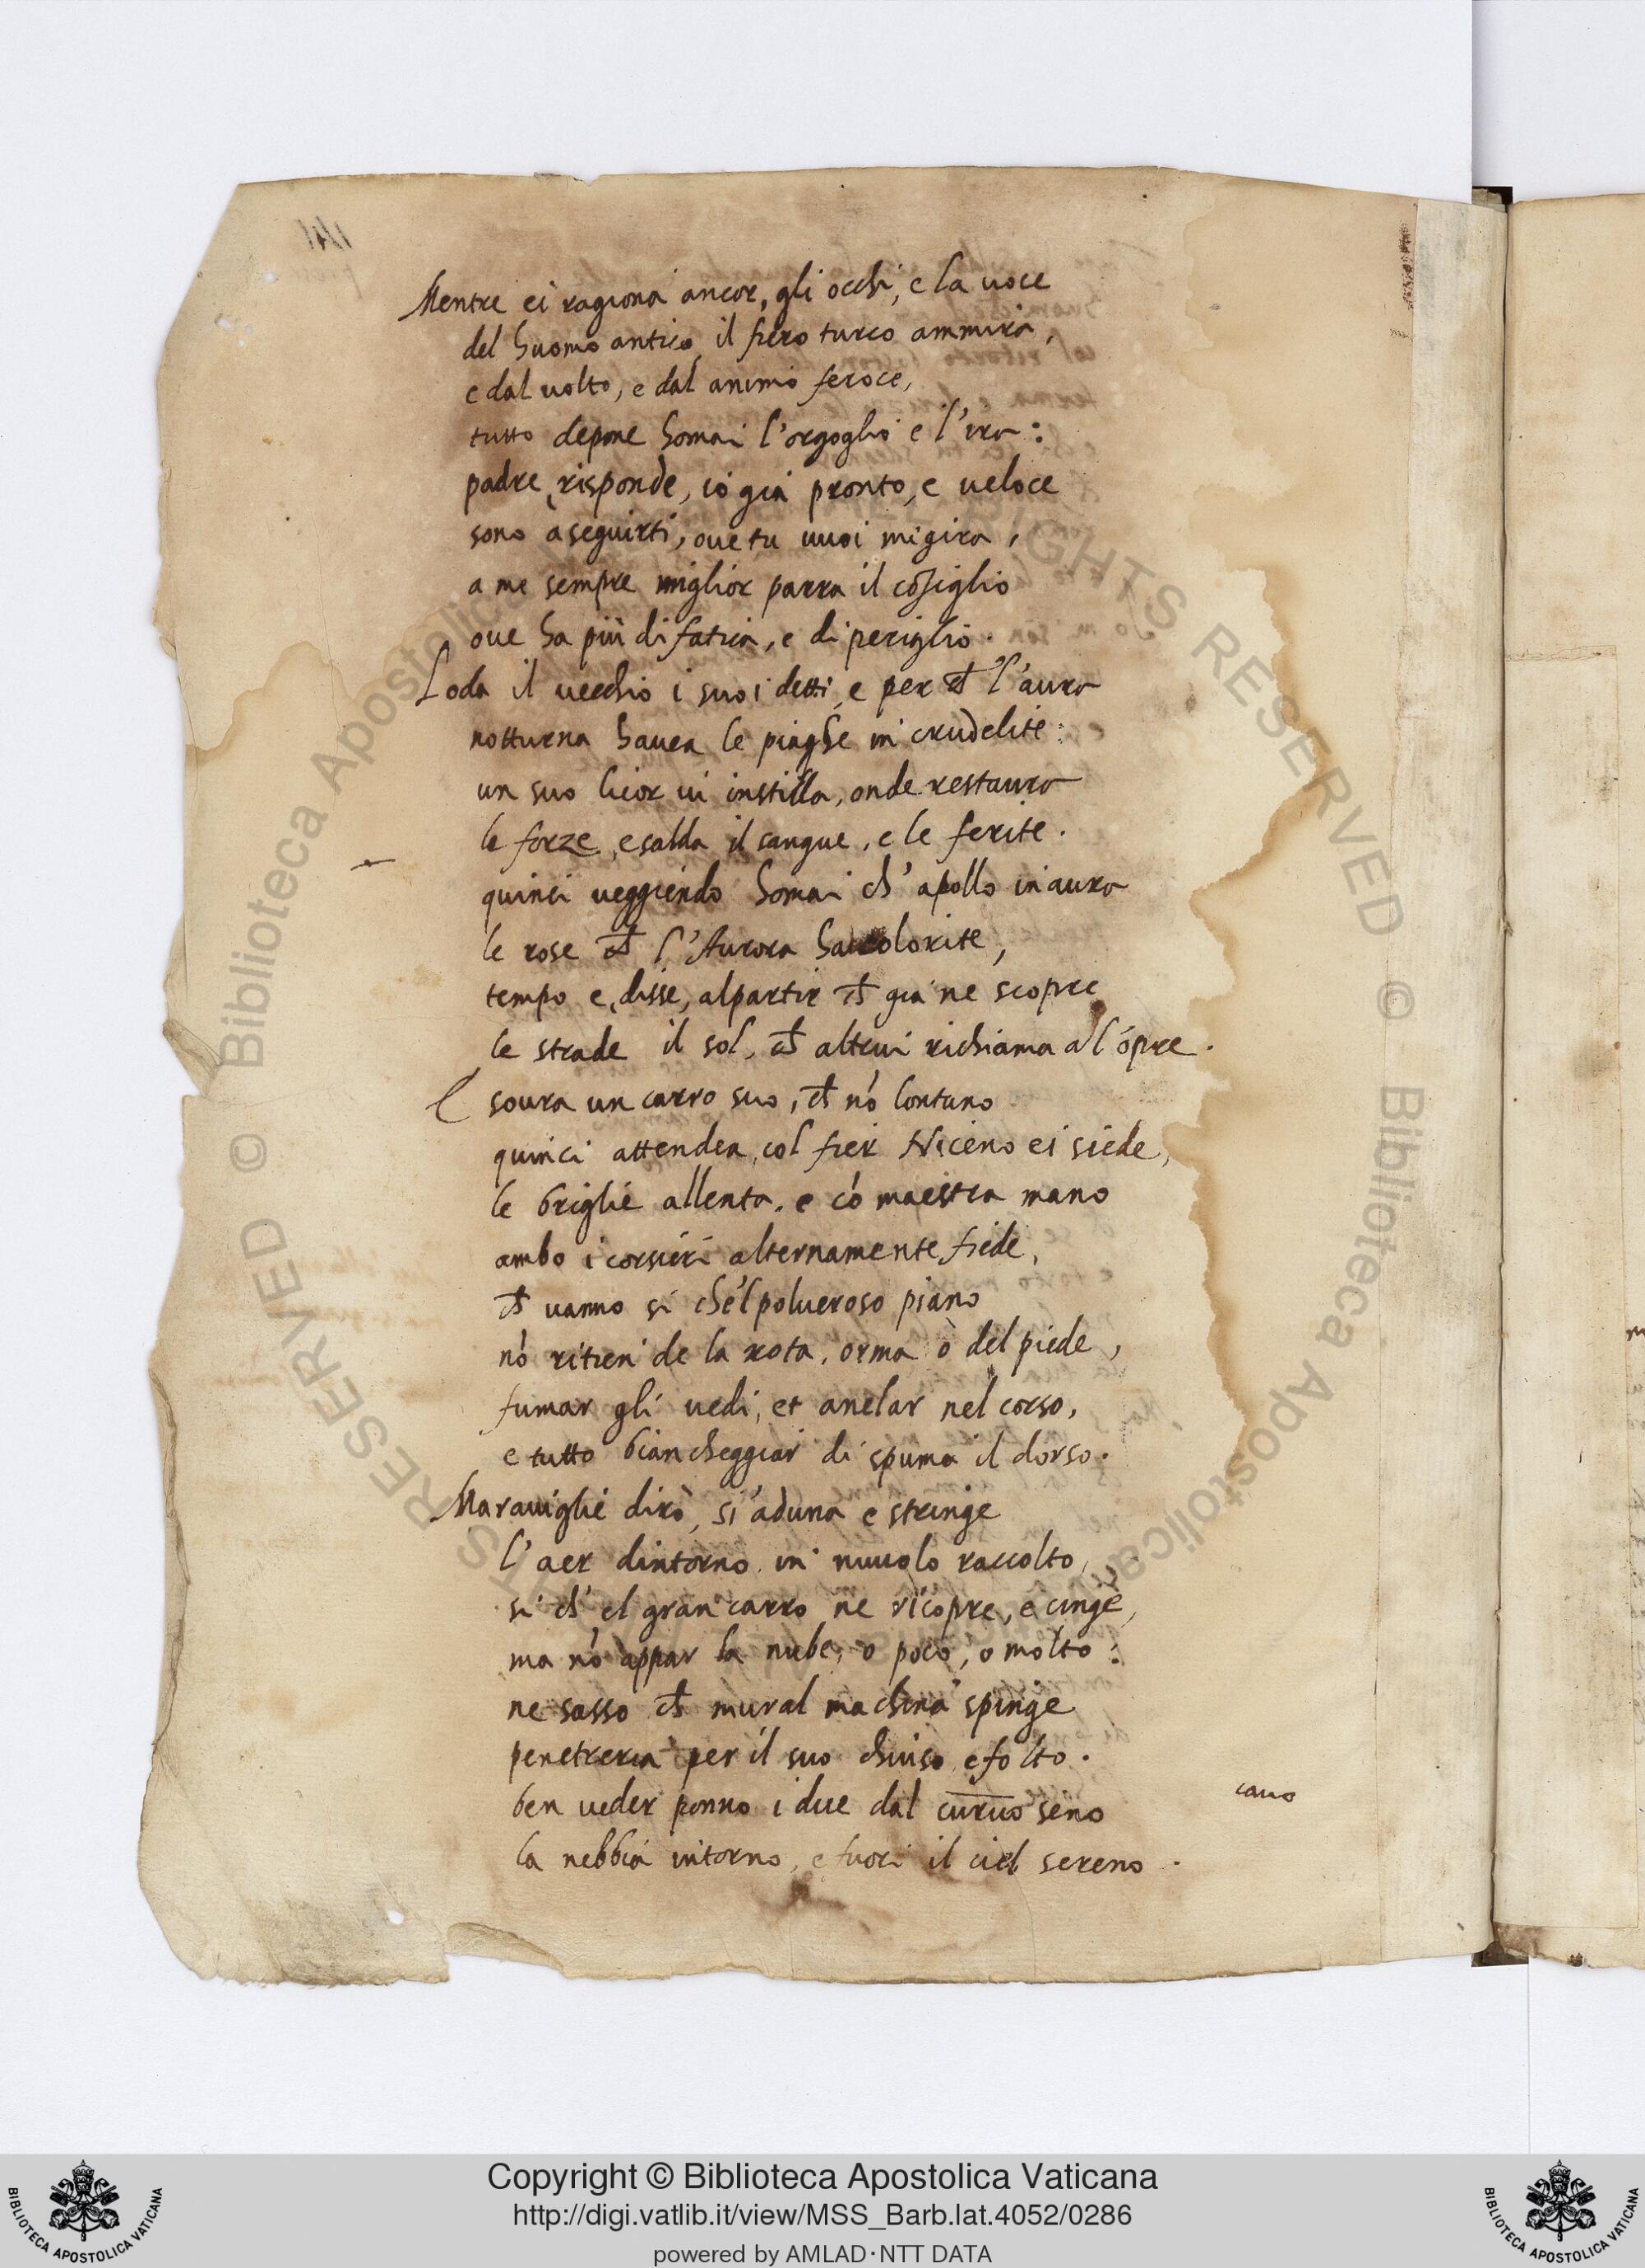 Mentre ei ragiona ancor, gli occhi, e la uoce
del huomo antico il fiero turco ammira,
e dal uolto, e dal animo feroce,
tutto depone homai l'orgoglio e l'ira:
padre, risponde, io già pronto, e ueloce
sono a seguirti, oue tu uuoi mi gira,
a me sempre miglior parra il cõsiglio
oue ha più di fatica, e di periglio.
Loda il uecchio i suoi detti, e per ch̃ l'aura
notturna hauea le piaghe in crudelite:
un suo licor ui instilla, onde restaura
le forze, e salda il sangue, e le ferite.
quinci ueggiendo homai ch' apollo inaura
le rose ch̃ l'Aurora ha colorite,
tempo e, disse, al partir ch̃ gia ne scopre
le strade il sol, ch̃ altrui richiama al ópre.
E soura un carro suo, ch̃ nõ lontano
quinci attendea, col fier Niceno ei siede,
le briglie allenta, e cõ maestra mano
ambo i corsieri alternamente fiede,
ch̃ uanno si che'l polueroso piano
nõ ritien de la rota, orma ò del piede,
fumar gli uedi, et anelar nel corso,
e tutto biancheggiar di spuma il dorso.
Marauiglie dirò, si aduna e stringe
l'aer dintorno in nuuolo raccolto,
si ch' el gran carro ne ricopre, e cinge,
ma nõ appar la nube, o poco, o molto:
ne sasso ch̃ mural machina spinge
penetreria per il suo chiuso e folto.
ben ueder ponno i due dal curuo seno
cauo
la nebbia intorno, e fuori il ciel sereno.
Copyright © Biblioteca Apostolica Vaticana
http://digi.vatlib.it/view/MSS_Barb.lat.4052/0286
powered by AMLAD·NTT DATA
BIBLIOTECA APOSTOLICA VATICANA
BIBLIOTECA APOSTOLICA VATICANA